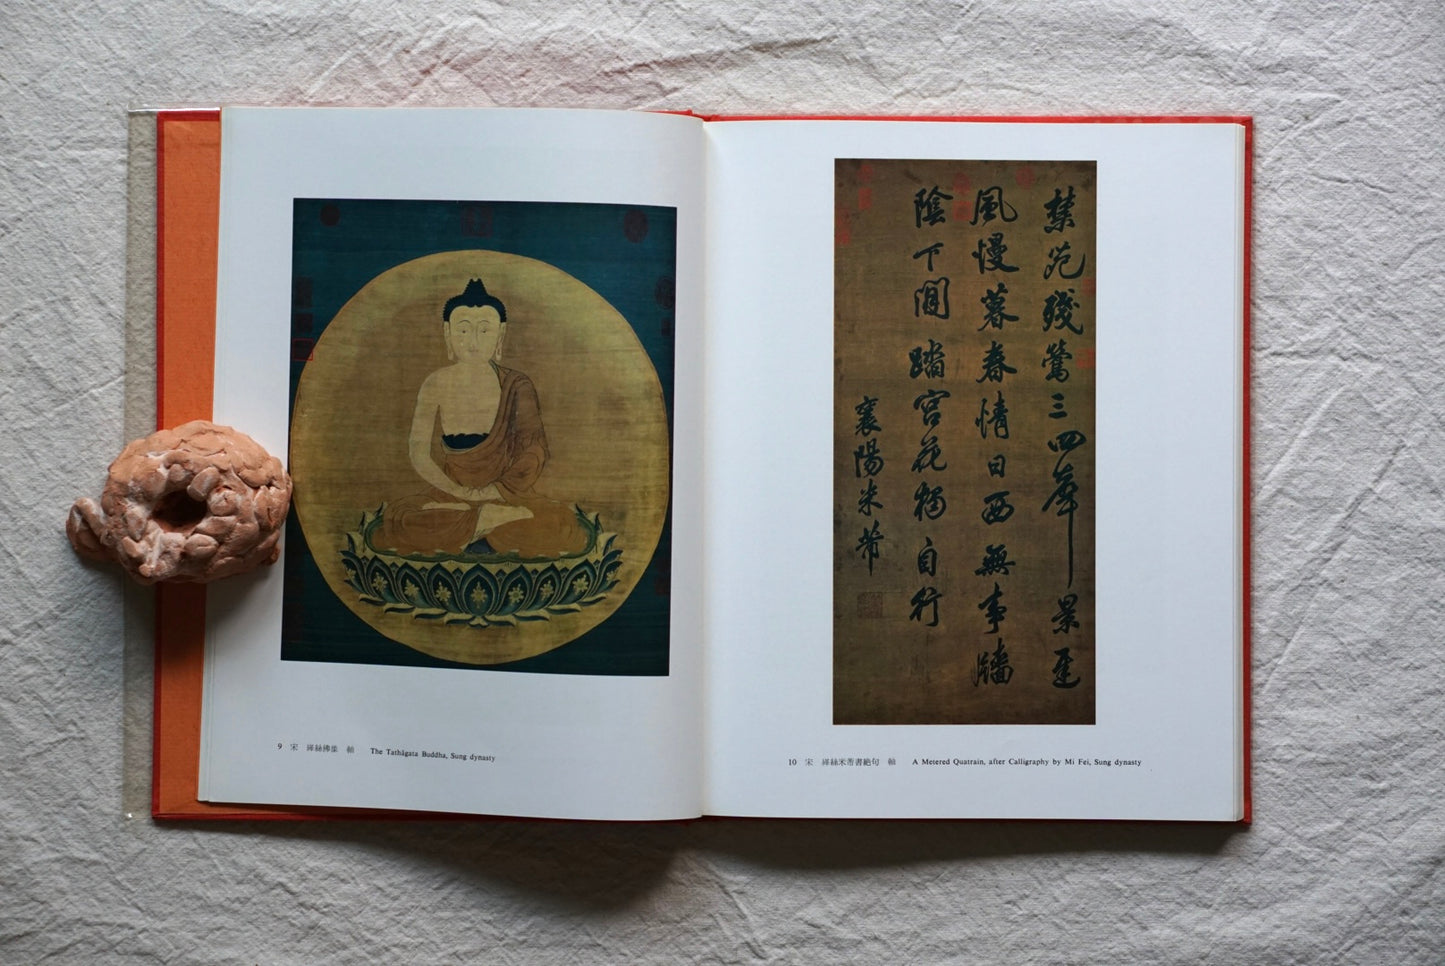 9 宋 緙絲佛像 軸 The Tathāgata Buddha, Sung dynasty
禁苑殘鶯三四聲景遲
風慢暮春情日西無事牆
陰下閒踏宮花獨自行
襄陽米芾
10 宋 緙絲米芾書絕句 軸 A Metered Quatrain, after Calligraphy by Mi Fei, Sung dynasty